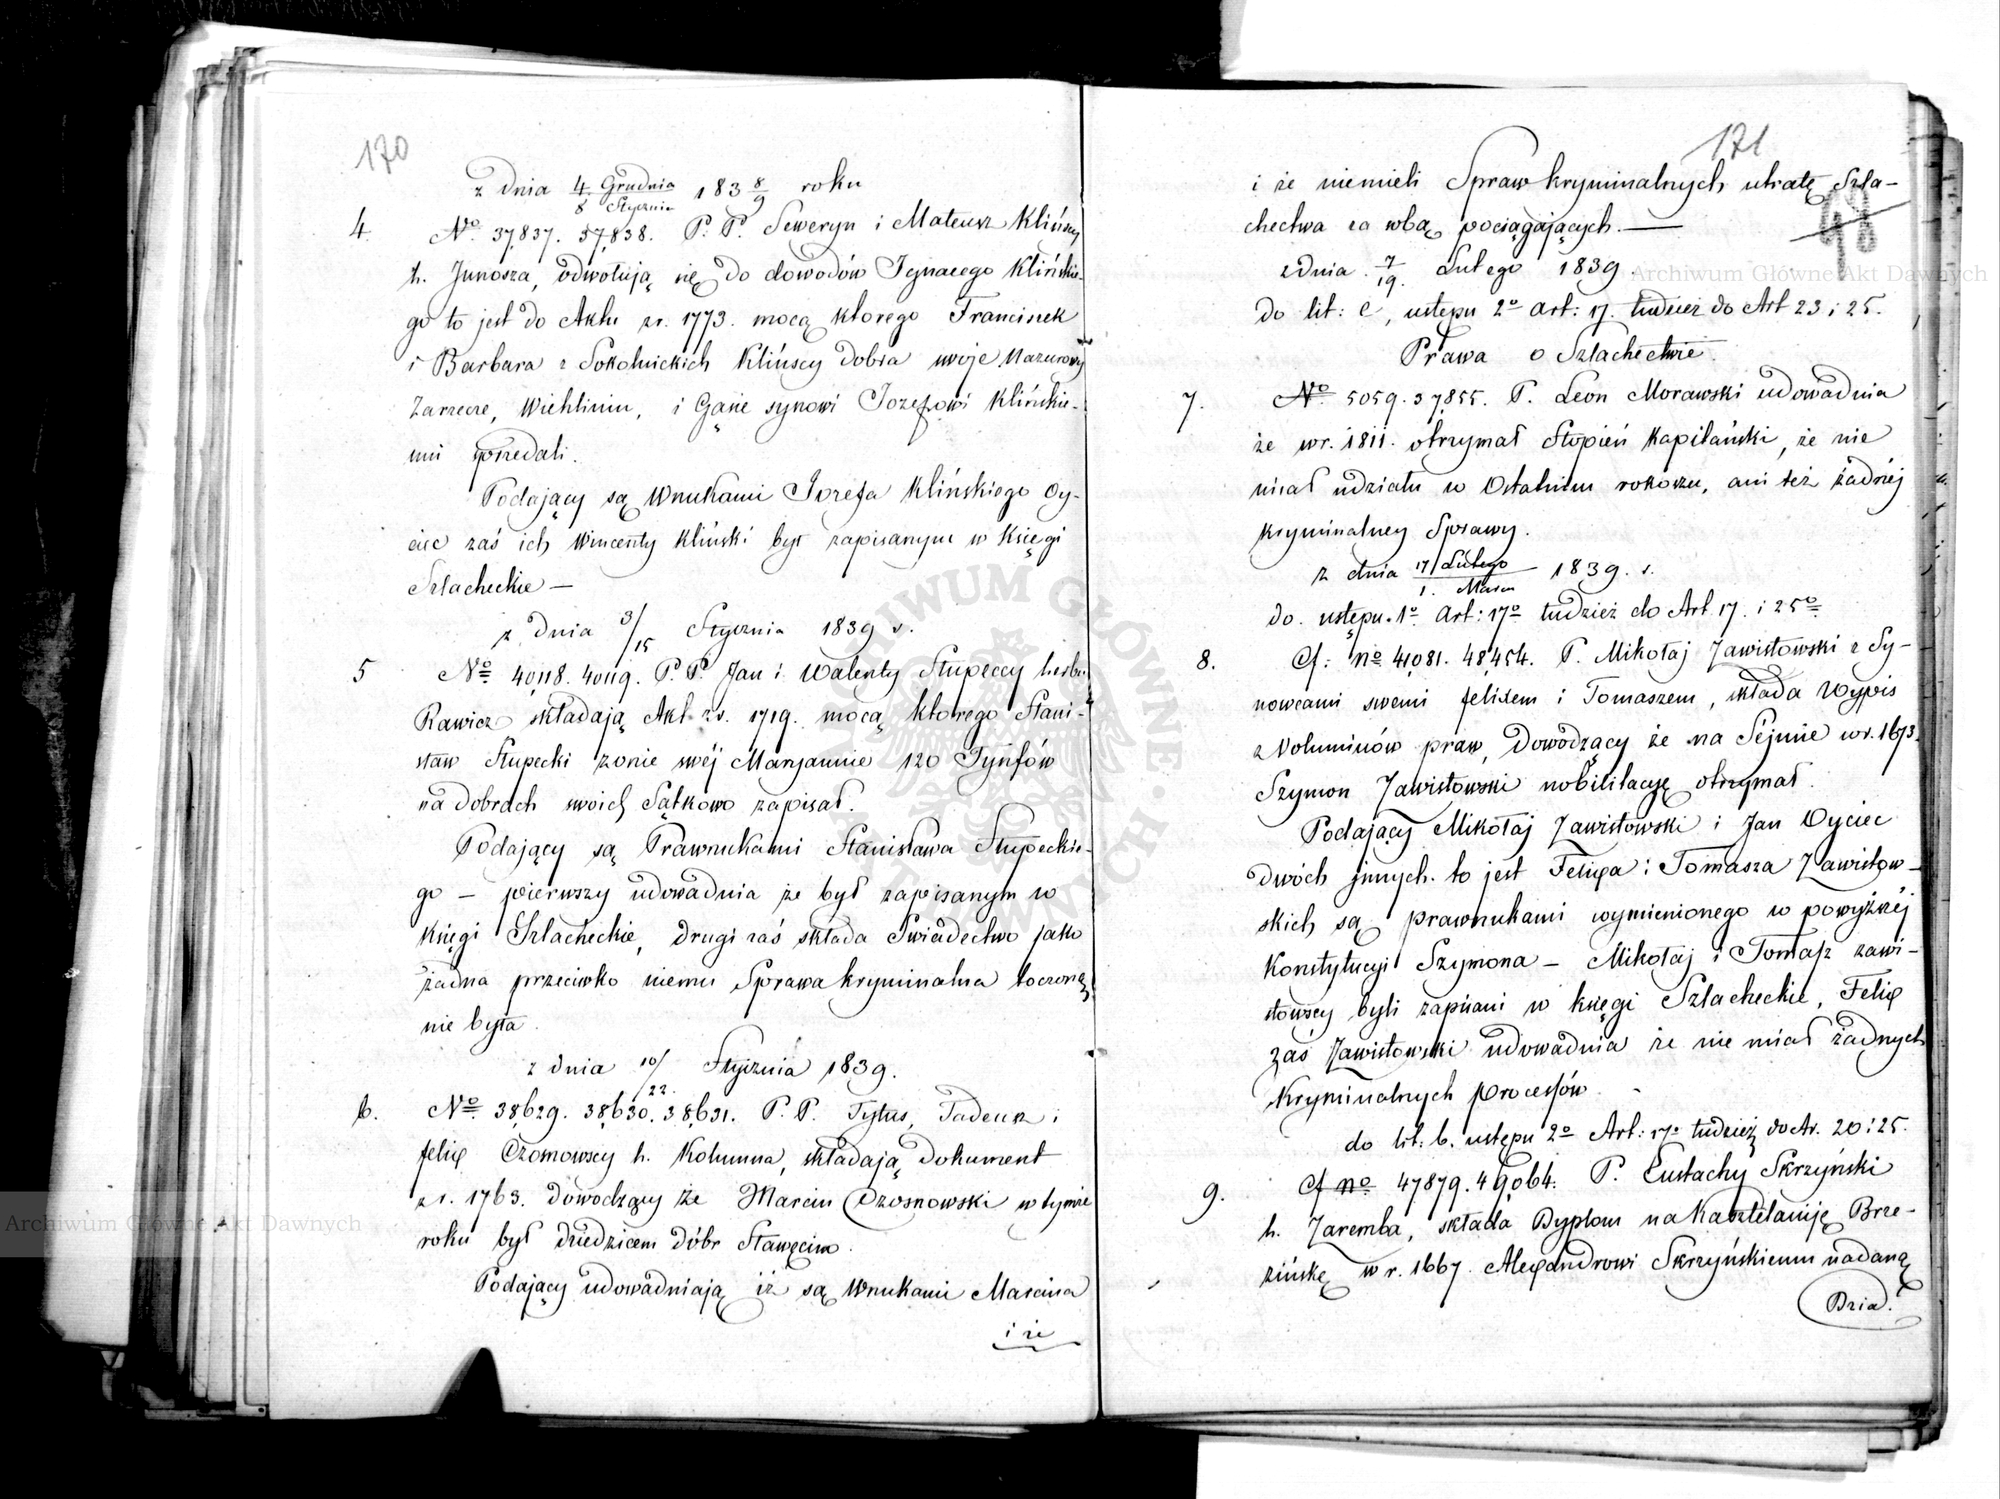 170
z dnia 4 Grudnia / 8 Stycznia 183 8/9 roku
4. No. 37,837. 37,838. P. P. Seweryn i Mateusz Klińscy
h. Junosza, odwołują się do dowodów Ignacego Klińskie-
go to jest do Aktu zr. 1773. mocą ktorego Franciszek
i Barbara z Sokolnickich Klińscy dobra swoje Mazurowy
Zarzecze, Wichliniu, i Gaie synowi Jozefowi Klińskie-
mu przedali.
Podający są Wnukami Jozefa Klińskiego Oy-
ciec zaś ich Wincenty Kliński był zapisanym w Księgi
Szlacheckie —
z dnia 3/15 Stycznia 1839 r.
5 No 40,118. 40119. P. P. Jan i Walenty Słupeccy herbu
Rawicz składają Akt zr. 1719. mocą ktorego Stani-
sław Słupecki zonie swéj Marjannie 120 Tynfów
na dobrach swoich Sątkowo zapisał.
Podający są Prawnukami Stanisława Słupeckie-
go — pierwszy udowadnia że był zapisanym w
Księgi Szlacheckie, drugi zaś składa Swiadectwo jako
żadna przeciwko niemu Sprawa kryminalna toczoną
nie była.
z dnia 10/22. Stycznia 1839.
6. No. 38,629. 38,630. 38,631. P. P. Tytus, Tadeusz i
felix Czosnowscy h. Kolumna, składają Dokument
z r. 1763. dowodzący że Marcin Czosnowski w tymże
roku był dziedzicem dóbr Stawęcino.
Podający udowadniają iż są Wnukami Marcina
i że
171
i że niemieli Spraw kryminalnych utratę Szla-
chectwa za sobą pociągających. —
98
z dnia 7/19. Lutego 1839.
do lit: C, ustępu 2o art: 17. tudzież do Art 23 i 25.
Prawa o Szlachectwie.
7. No. 5059. 37,855. P. Leon Morawski udowadnia
że wr. 1811. otrzymał Stopień Kapitański, że nie
miał udziału w Ostatnim rokoszu, ani też żadnéj
kryminalney Sprawy.
z dnia 17 Lutego / 1. Marca 1839. r.
do. ustępu. 1o Art: 17o tudzież do Art. 17. i 25o
8. Cf: No 41,081. 48,454. P. Mikołaj Zawistowski z Sy-
nowcami swemi felixem i Tomaszem, składa Wypis
z Voluminów praw, Dowodzący że na Sejmie wr. 1673.
Szymon Zawistowski nobilitacyę otrzymał.
Podający Mikołaj Zawistowski i Jan Oyciec
dwóch innych. to jest Felixa i Tomasza Zawistow-
skich są prawnukami wymienionego w powyższéj
Konstytucyi Szymona — Mikołaj i Tomasz Zawi-
stowscy byli zapisani w księgi Szlacheckie, Felix
zaś Zawistowski udowadnia że nie miał żadnych
Kryminalnych processów.
do lit: b. ustępu 2o Art: 17o tudzież do Ar. 20 i 25.
9. Cf No 47879. 49,064. P. Eustachy Skrzyński
h. Zaremba, składa Dyplom na Kasztelaniję Brze-
zińskę w r. 1667. Alexandrowi Skrzyńskiemu nadaną
Dzia.
Archiwum Główne Akt Dawnych
Archiwum Główne Akt Dawnych
ARCHIWUM GŁÓWNE AKT DAWNYCH